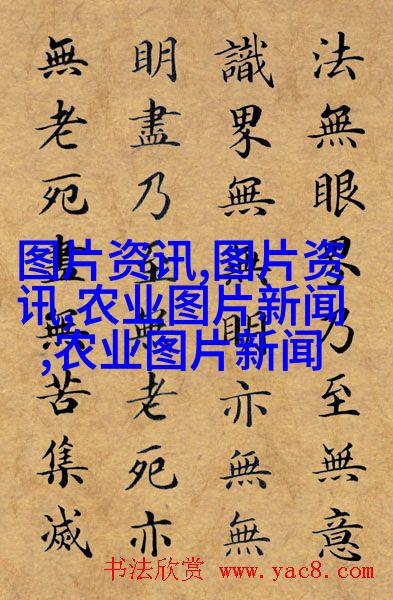 法無眼界乃至無意
識界無無明亦無無
明盡乃至無老死亦
無老死盡無苦集滅
图片资讯,图片资
讯,农业图片新闻
,农业图片新闻
书法欣赏 www.yac8.com